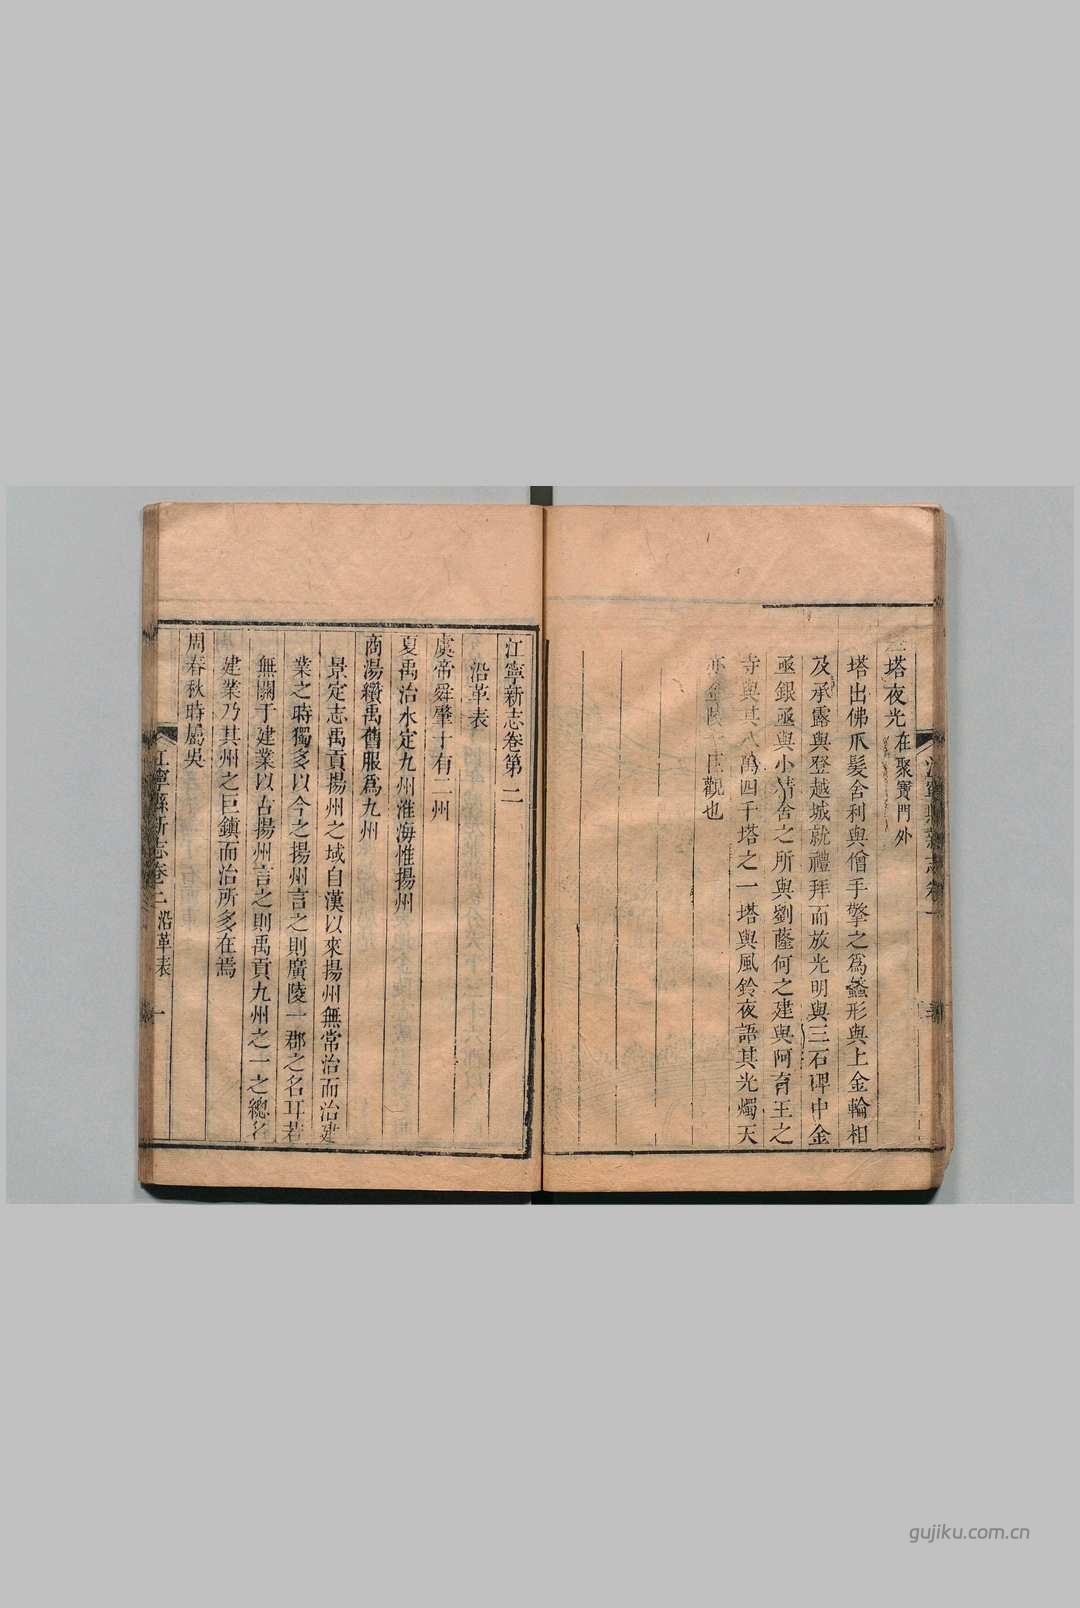 塔夜光在聚寶門外
塔出佛爪髮舍利與僧手擎之爲蠡形與上金輪相
及承露與登越城就禮拜而放光明與三石碑中金
函銀函與小精舍之所與劉薩何之建與阿育王之
寺與其八萬四千塔之一塔與風鈴夜語其光燭天
亦金陵一巨觀也
江寧縣新志卷一
江寧新志卷第二
沿革表
虞帝舜肇十有二州
夏禹治水定九州淮海惟揚州
商湯纘禹舊服爲九州
景定志禹貢揚州之域自漢以來揚州無常治而治建
業之時獨多以今之揚州言之則廣陵一郡之名耳若
無關于建業以古揚州言之則禹貢九州之一之總名
建業乃其州之巨鎮而治所多在焉
周春秋時屬吳
江寧縣新志卷二 沿革表 一
gujiku.com.cn